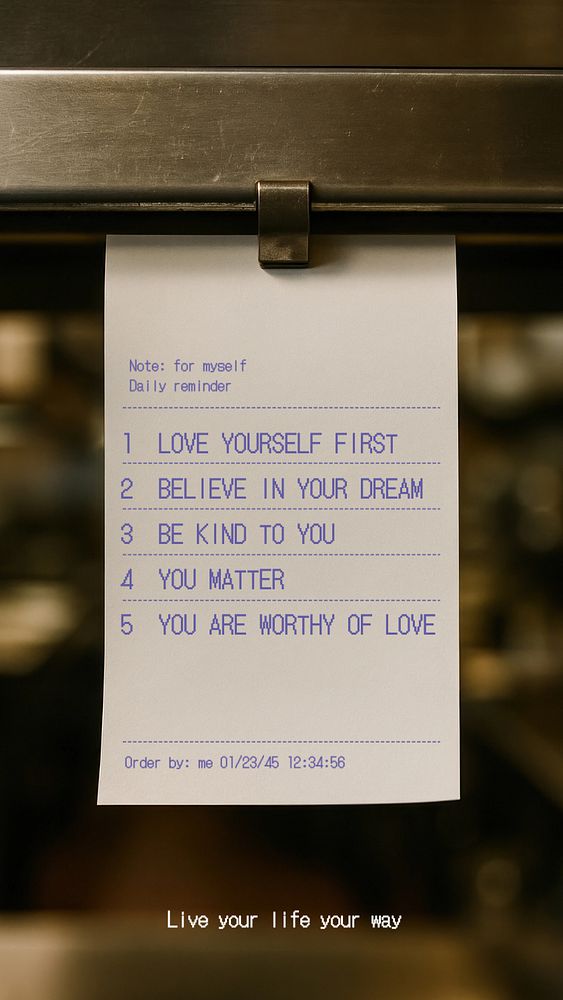 Note: for myself
Daily reminder
1 LOVE YOURSELF FIRST
2 BELIEVE IN YOUR DREAM
3 BE KIND TO YOU
4 YOU MATTER
5 YOU ARE WORTHY OF LOVE
Order by: me 01/23/45 12:34:56
Live your life your way